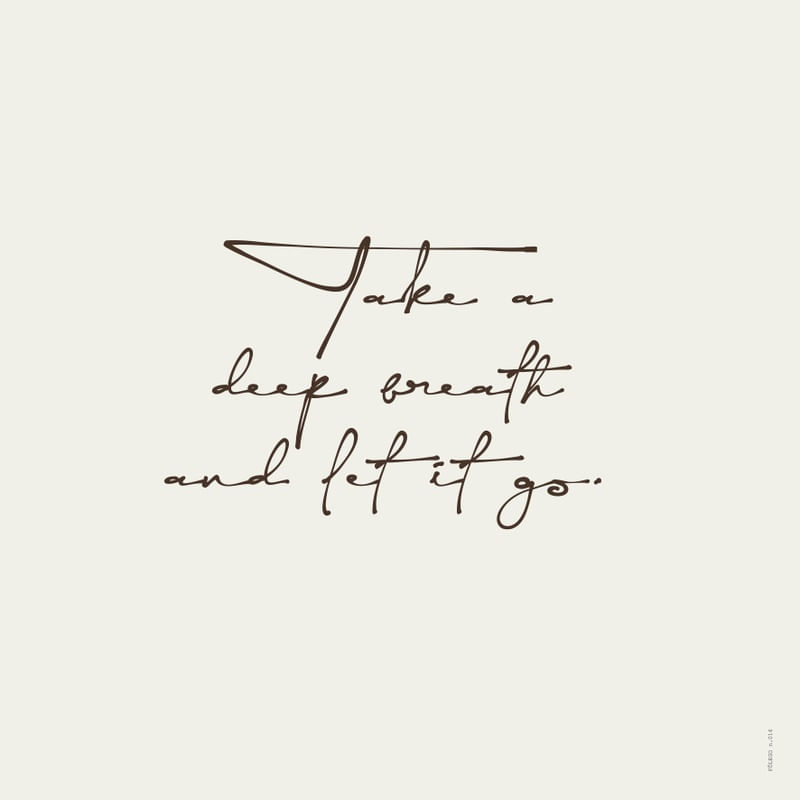 Take a
deep breath
and let it go.
FÔLEGO n.014